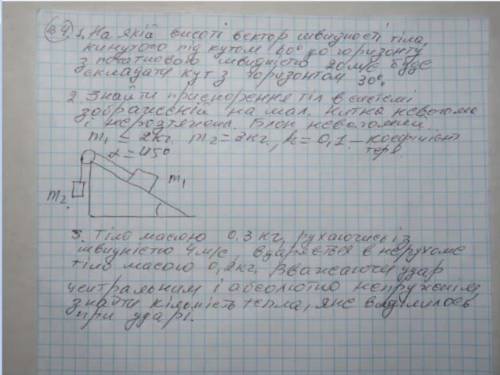 В4 1. На якій висоті вектор швидкості тіла,
кинутого під кутом 60° до горизонту
з початковою швидкістю 20 м/с буде
складати кут з горизонтом 30°.
2. Знайти прискорення тіл в системі
зображеній на мал. Нитка невагома
і нерозтяжна. Блок невагомий.
m₁ = 2кг m₂ = 3кг, k = 0,1 - коефіцієнт
α = 45° терт.
m₁
m₂
3. Тіло масою 0.3 кг, рухаючись із
швидкістю 4 м/с вдаряється в нерухоме
тіло масою 0,2кг. Вважаючи удар
центральним і абсолютно непружнім
знайти кількість тепла, яке виділилось
при ударі.